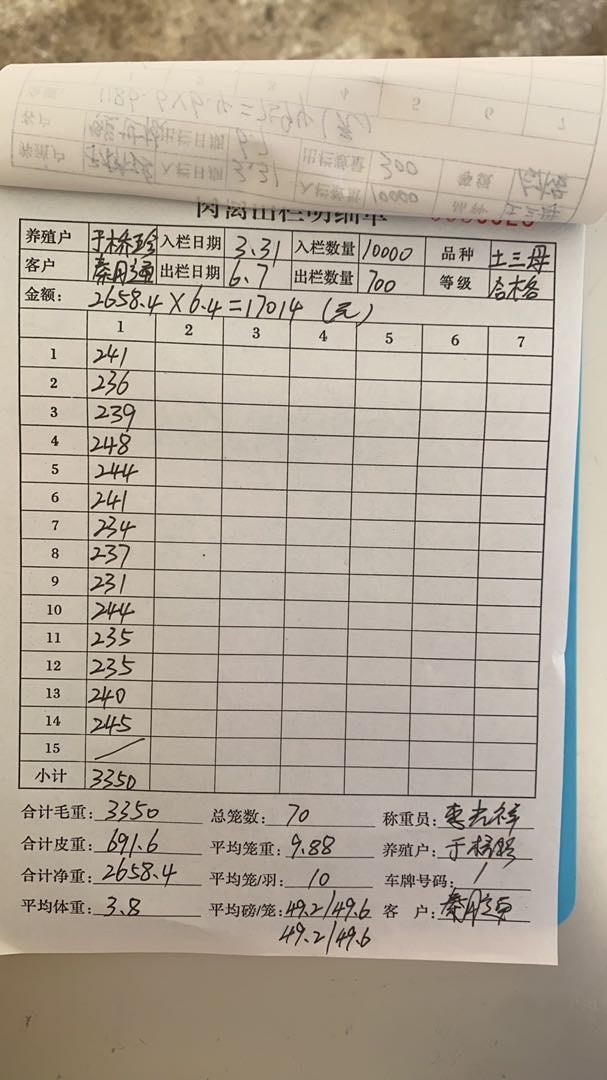 肉禽出栏明细单
养殖户 于桥珍 入栏日期 3.31 入栏数量 10000 品种 土三母
客户 出栏日期 6.7 出栏数量 700 等级 合格
金额: 2658.4×6.4=17014 (元)
1 2 3 4 5 6 7
1 241
2 236
3 239
4 248
5 244
6 241
7 234
8 237
9 231
10 244
11 235
12 235
13 240
14 245
15 /
小计 3350
合计毛重: 3350 总笼数: 70 称重员:
合计皮重: 691.6 平均笼重: 9.88 养殖户:
合计净重: 2658.4 平均笼/羽: 10 车牌号码: /
平均体重: 3.8 平均磅/笼: 49.2/49.6 客 户:
49.2/49.6